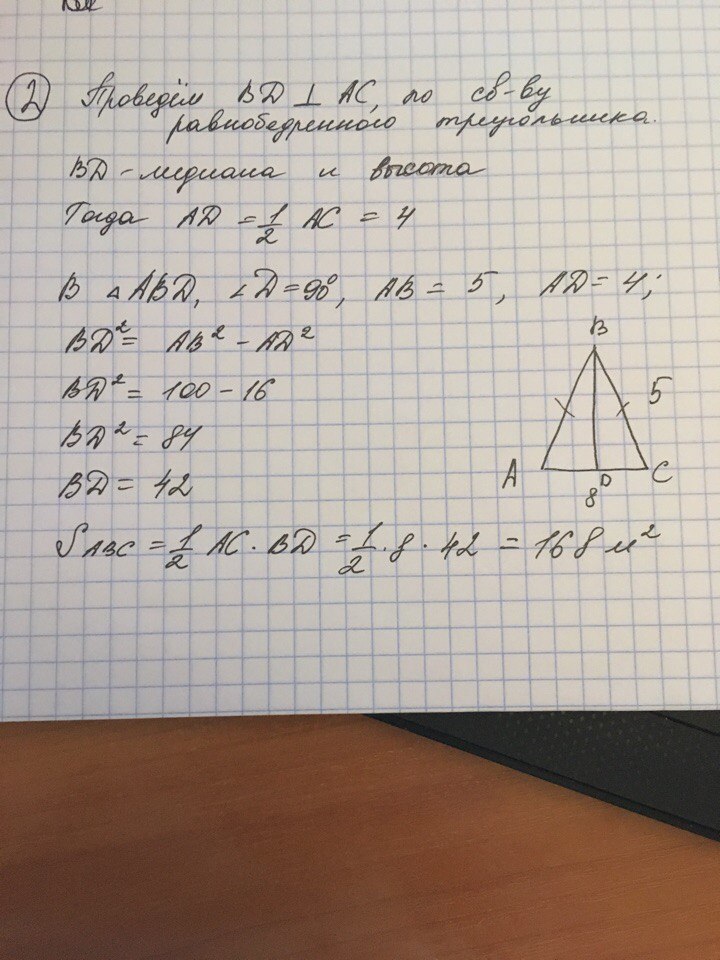 2 Проведём BD ⊥ AC, по св-ву
равнобедренного треугольника.
BD - медиана и высота
Тогда AD = 1/2 AC = 4
В △ABD, ∠D = 90°, AB = 5, AD = 4;
BD² = AB² - AD²
BD² = 100 - 16
BD² = 84
BD = 42
B
5
A
D
C
8
S ABC = 1/2 AC · BD = 1/2 · 8 · 42 = 168 м²